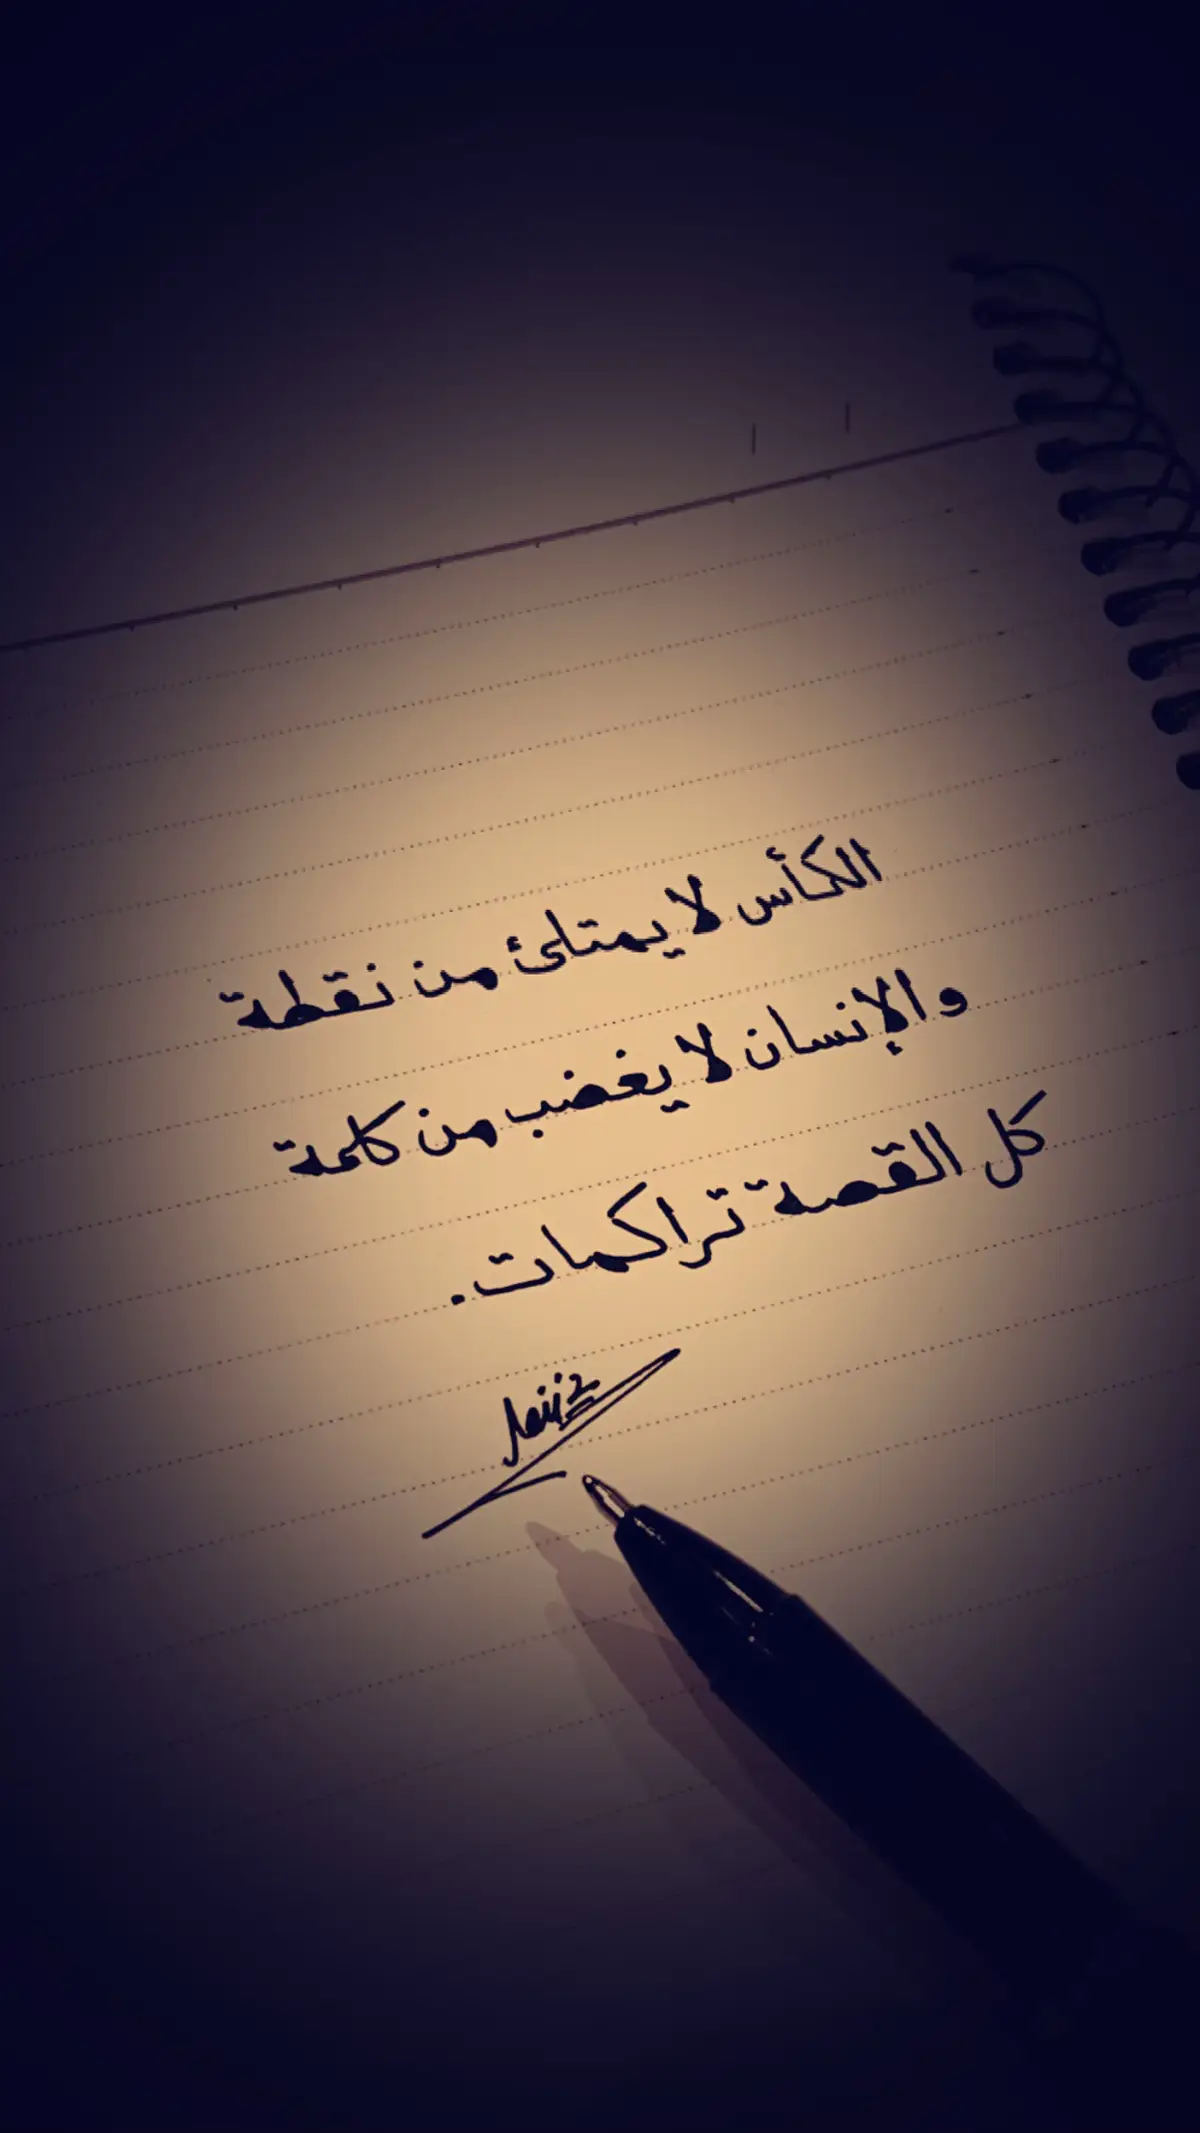 الكأس لا يمتلئ من نقطة
والإنسان لا يغضب من كلمة
كل القصة تراكمات.